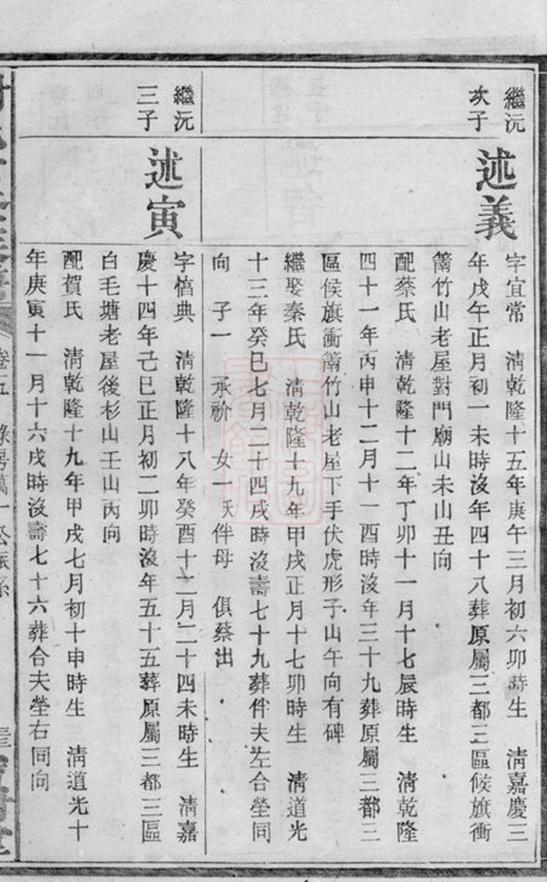 繼沅
次子
述義
字宜常　清乾隆十五年庚午三月初六卯時生　清嘉慶三
年戊午正月初一未時沒年四十八葬原屬三都三區候旗衝
箭竹山老屋對門廟山未山丑向
配蔡氏　清乾隆十二年丁卯十一月十七辰時生　清乾隆
四十一年丙申十二月十一酉時沒年三十九葬原屬三都三
區候旗衝箭竹山老屋下手伏虎形子山午向有碑
繼娶秦氏　清乾隆十九年甲戌正月十七卯時生　清道光
十三年癸巳七月二十四戌時沒壽七十九葬伴夫左合塋同
向　子一　承祄　女一　伴母　俱蔡出
繼沅
三子
述寅
字慎典　清乾隆十八年癸酉十二月二十四未時生　清嘉
慶十四年己巳正月初二卯時沒年五十五葬原屬三都三區
白毛塘老屋後杉山壬山丙向
配賀氏　清乾隆十九年甲戌七月初十申時生　清道光十
年庚寅十一月十六戌時沒壽七十六葬合夫塋右同向
卷五